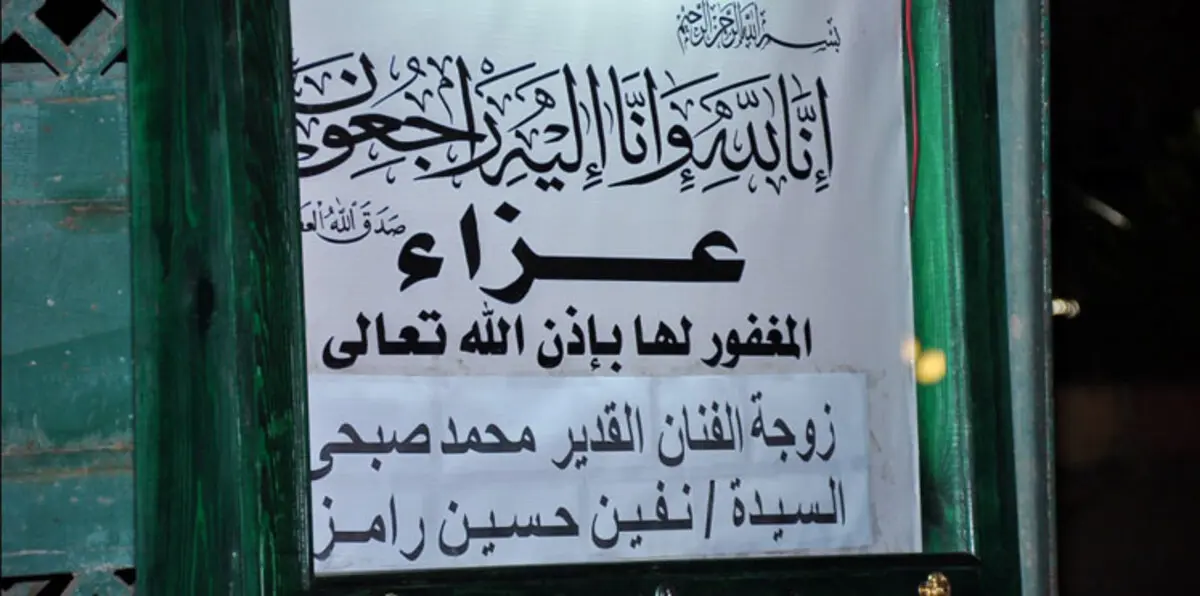 بسم الله الرحمن الرحيم
إِنَّا لِلَّهِ وَإِنَّا إِلَيْهِ رَاجِعُونَ
صَدَقَ اللهُ
عزاء
المغفور لها بإذن الله تعالى
زوجة الفنان القدير محمد صبحى
السيدة / نفين حسين رامز